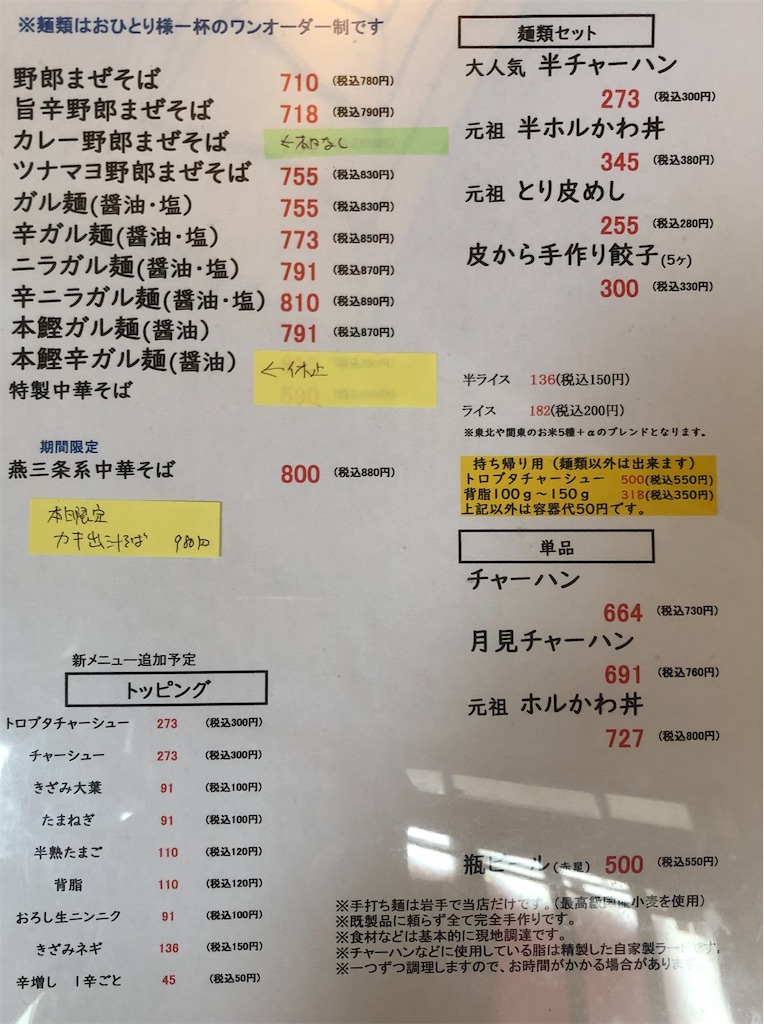 ※麺類はおひとり様一杯のワンオーダー制です
野郎まぜそば 710 (税込780円)
旨辛野郎まぜそば 718 (税込790円)
カレー野郎まぜそば ←本日なし
ツナマヨ野郎まぜそば 755 (税込830円)
ガル麺(醤油・塩) 755 (税込830円)
辛ガル麺(醤油・塩) 773 (税込850円)
ニラガル麺(醤油・塩) 791 (税込870円)
辛ニラガル麺(醤油・塩) 810 (税込890円)
本鰹ガル麺(醤油) 791 (税込870円)
本鰹辛ガル麺(醤油) ←休止
特製中華そば 590
期間限定
燕三条系中華そば 800 (税込880円)
本日限定
カキ出汁そば 980円
新メニュー追加予定
トッピング
トロブタチャーシュー 273 (税込300円)
チャーシュー 273 (税込300円)
きざみ大葉 91 (税込100円)
たまねぎ 91 (税込100円)
半熟たまご 110 (税込120円)
背脂 110 (税込120円)
おろし生ニンニク 91 (税込100円)
きざみネギ 136 (税込150円)
辛増し 1辛ごと 45 (税込50円)
麺類セット
大人気 半チャーハン
273 (税込300円)
元祖 半ホルかわ丼
345 (税込380円)
元祖 とり皮めし
255 (税込280円)
皮から手作り餃子(5ケ)
300 (税込330円)
半ライス 136(税込150円)
ライス 182(税込200円)
※東北や関東のお米5種+αのブレンドとなります。
持ち帰り用(麺類以外は出来ます)
トロブタチャーシュー 500(税込550円)
背脂100g～150g 318(税込350円)
上記以外は容器代50円です。
単品
チャーハン
664 (税込730円)
月見チャーハン
691 (税込760円)
元祖 ホルかわ丼
727 (税込800円)
瓶ビール(赤星) 500 (税込550円)
※手打ち麺は岩手で当店だけです。(最高級国産小麦を使用)
※既製品に頼らず全て完全手作りです。
※食材などは基本的に現地調達です。
※チャーハンなどに使用している脂は精製した自家製ラードです。
※一つずつ調理しますので、お時間がかかる場合があります。